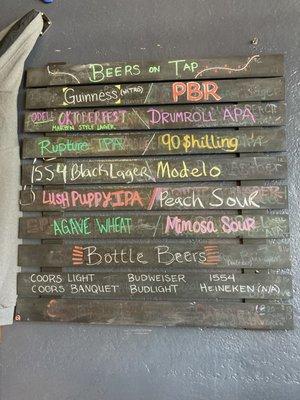 BEERS ON TAP
GUINNESS (NITRO) / PBR
ODELL OKTOBERFEST / DRUMROLL APA
MARZEN STYLE LAGER
RUPTURE IPA / 90 $hilling
1554 BLACK LAGER / MODELO
LUSH PUPPY IPA / PEACH SOUR
AGAVE WHEAT / MIMOSA SOUR
BOTTLE BEERS
COORS LIGHT BUDWEISER 1554
COORS BANQUET BUDLIGHT HEINEKEN (N/A)